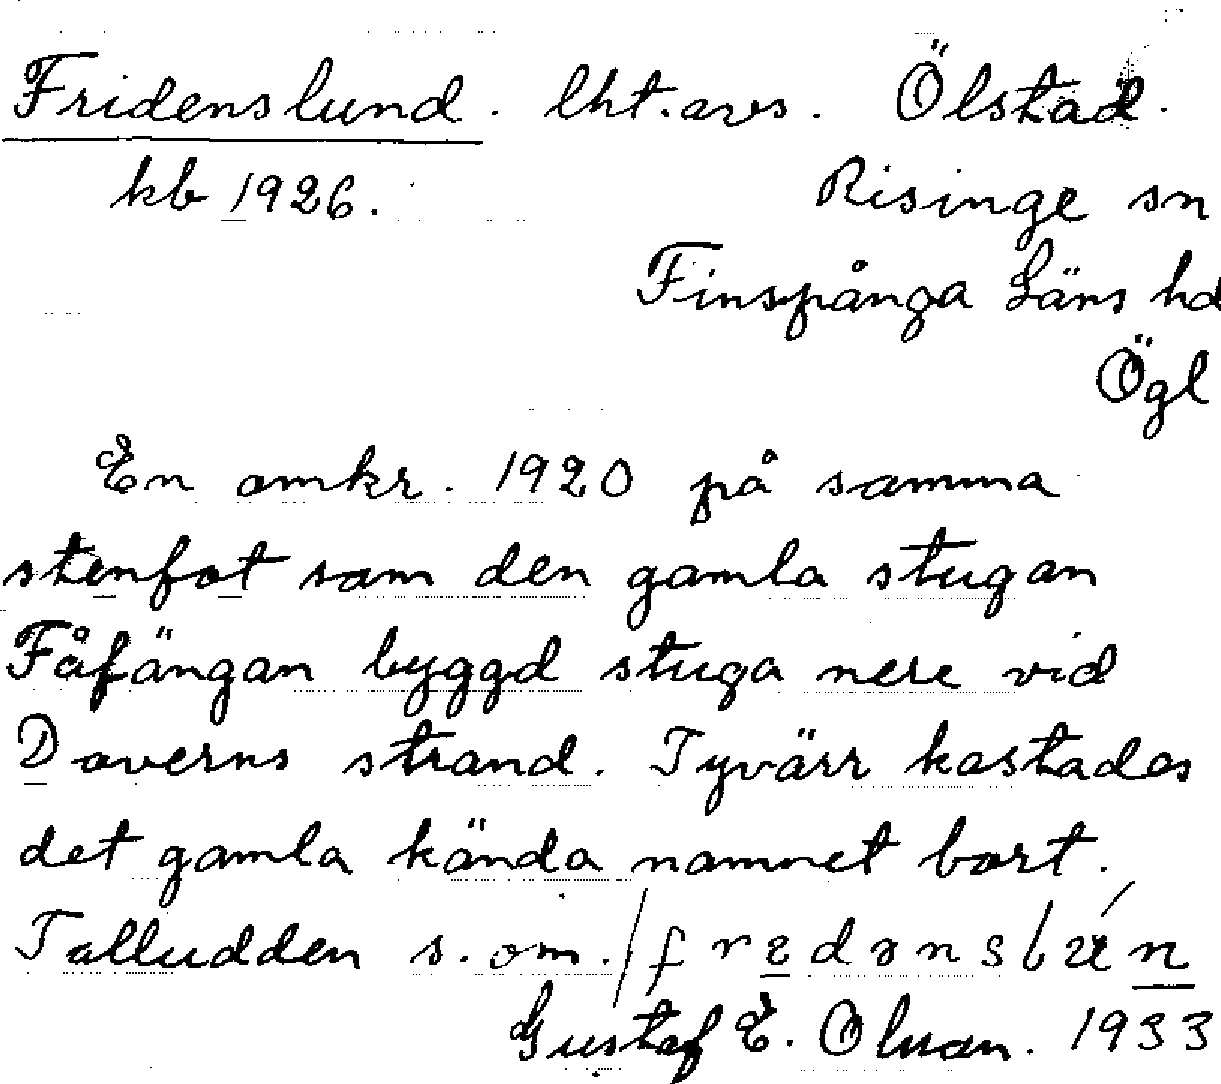 Fridenslund. lht. avs. Ölstad.
kb 1926. Risinge sn
Finspånga Läns hd
Ögl
En omkr. 1920 på samma
stenfot som den gamla stugan
Fåfängan byggd stuga nere vid
Doverns strand. Tyvärr kastades
det gamla kända namnet bort.
Talludden s. om.
Gustaf E. Olson. 1933